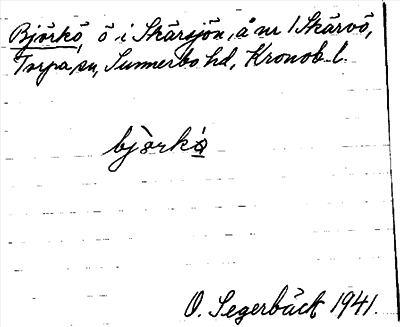 Björkö, ö i Skärsjön, å nr 1 Skärvö,
Torpa sn, Sunnerbo hd, Kronob. l.
bjòrkö́
O. Segerbäck 1941.